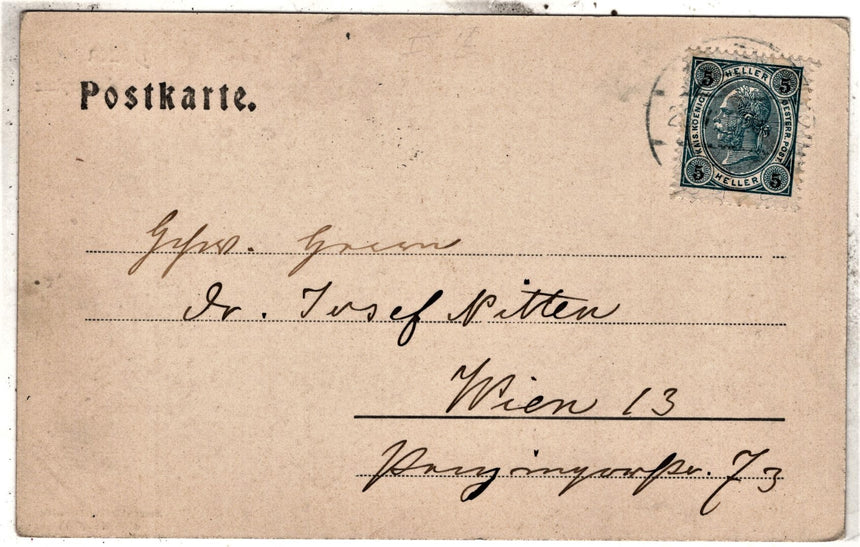 Postkarte.
5 HELLER 5
KAIS. KOENIGL. OESTERR. POST
5 HELLER 5
Dr. Josef Nitten
Wien 13
Penzingerstr. 73